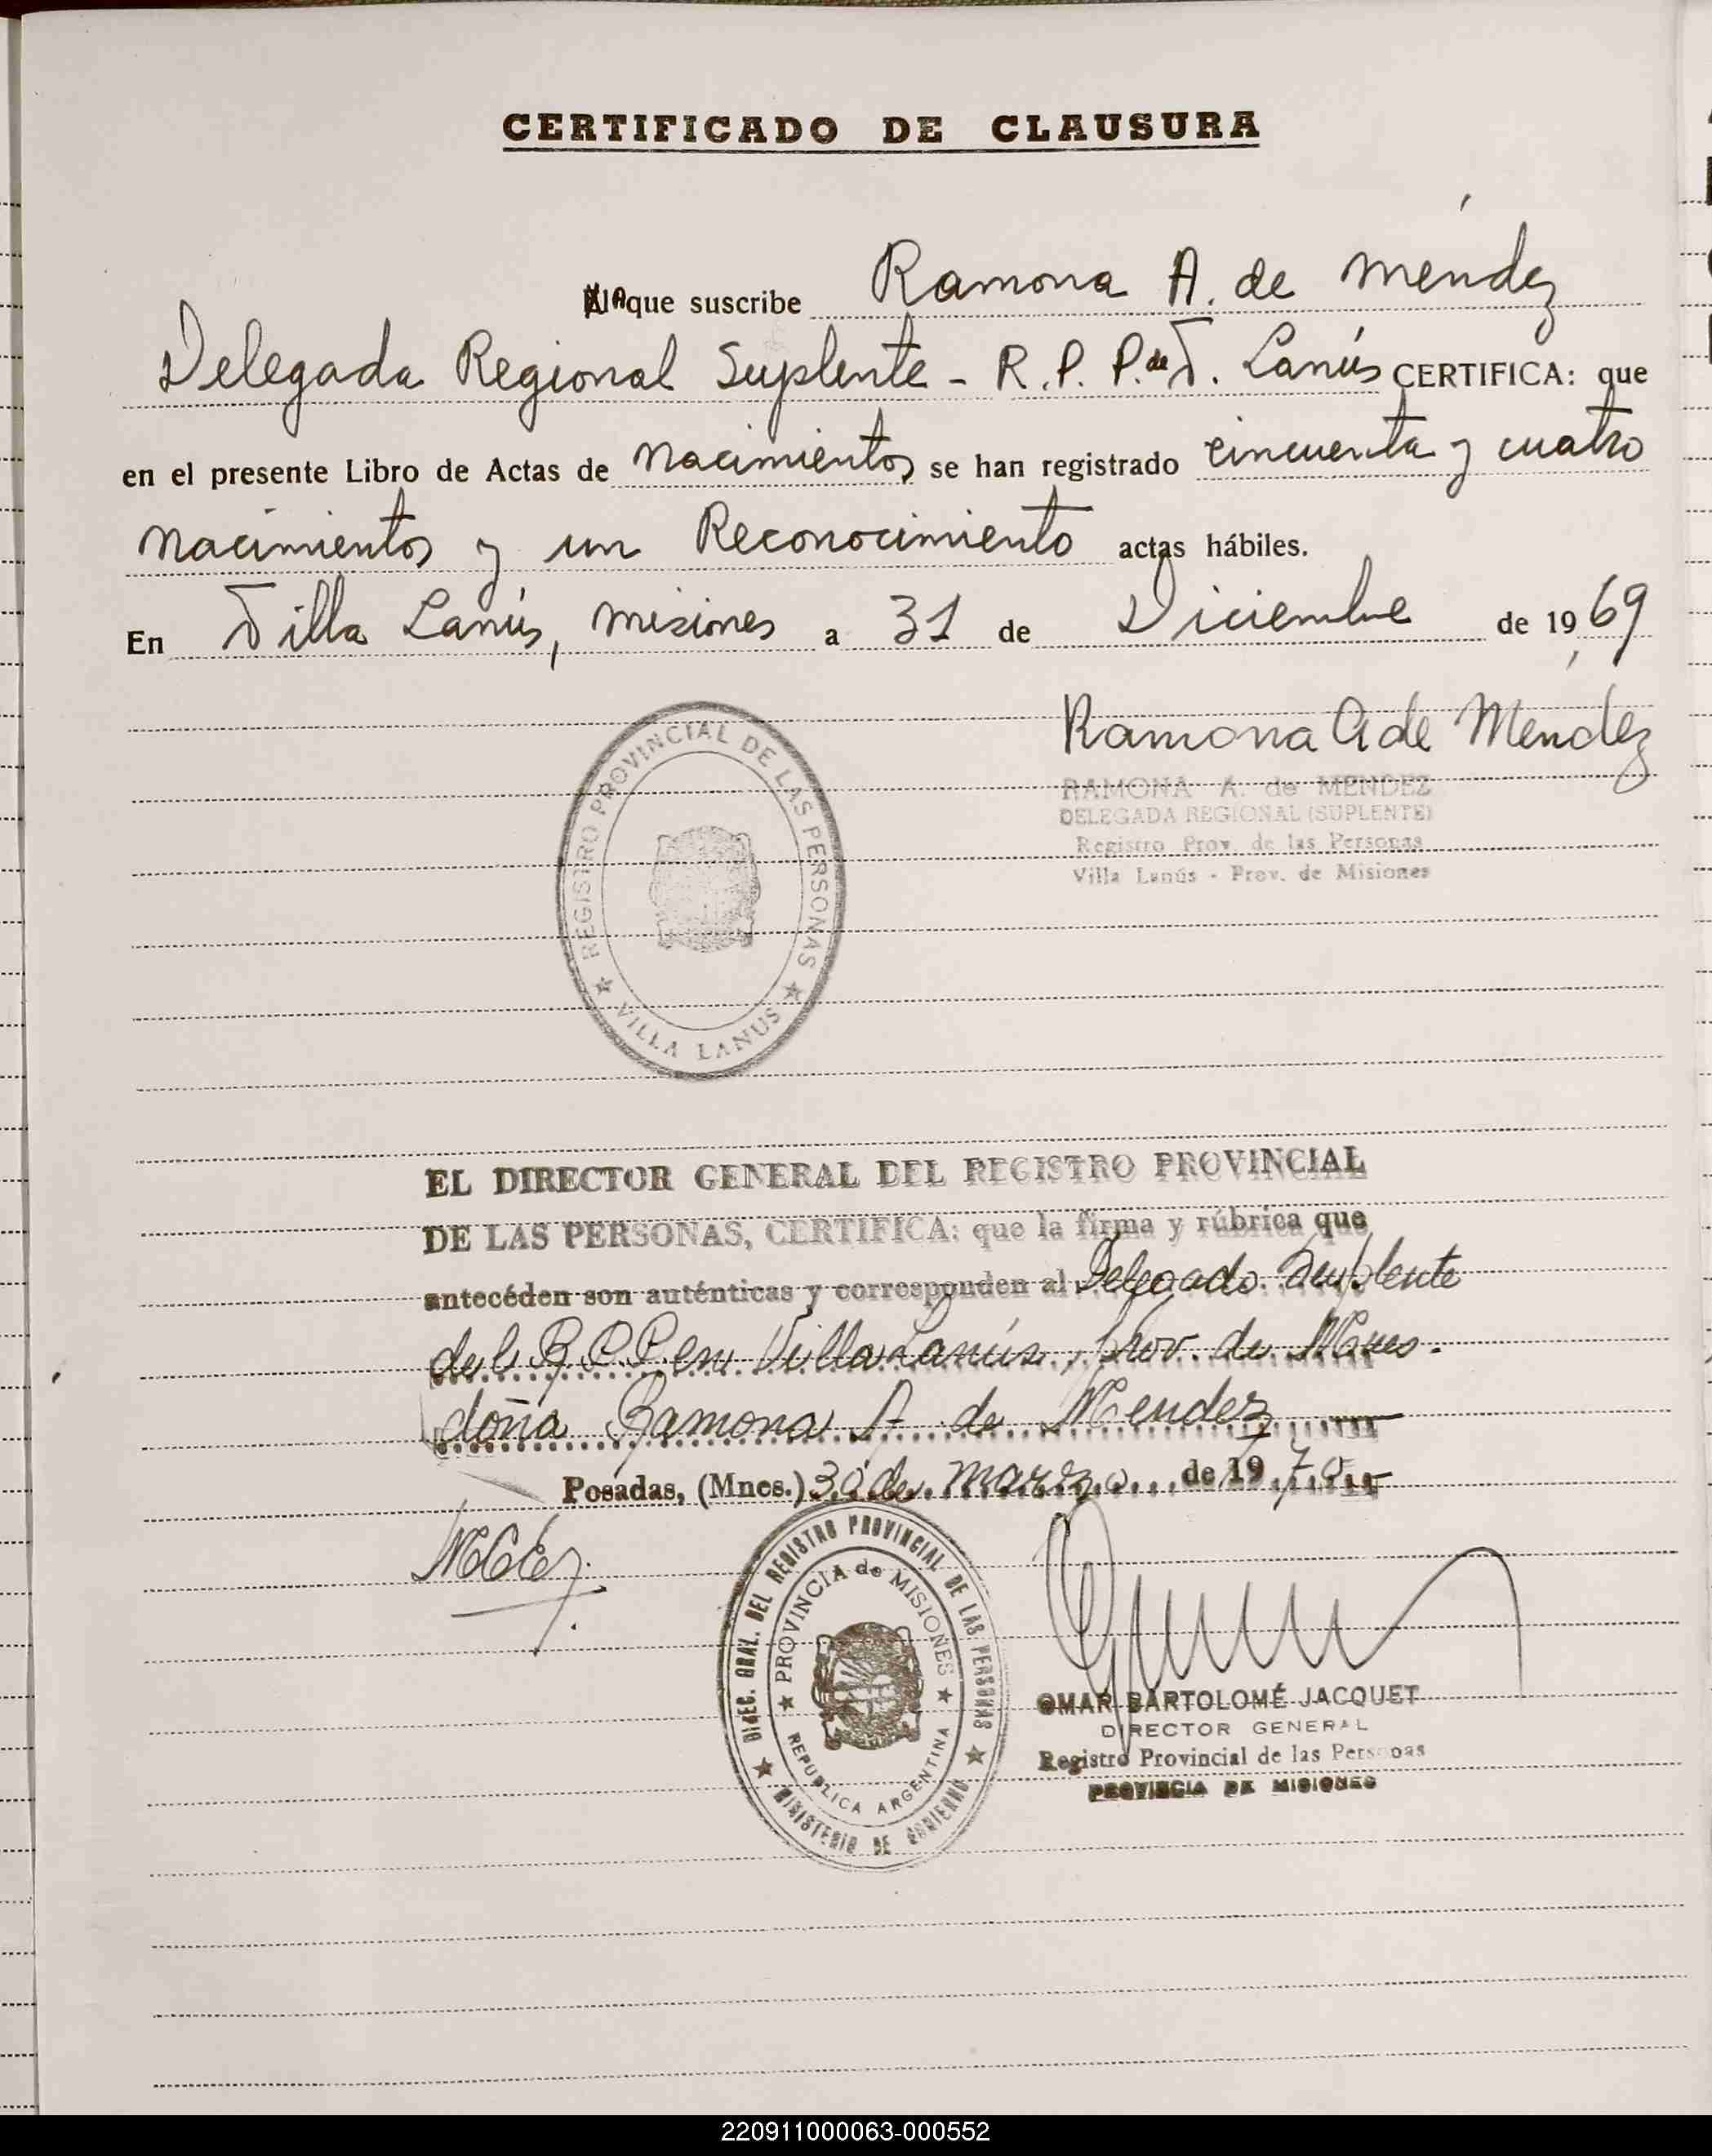 CERTIFICADO DE CLAUSURA
La que suscribe Ramona A. de Méndez
Delegada Regional Suplente - R. P. P. de V. Lanús CERTIFICA: que
en el presente Libro de Actas de Nacimientos se han registrado cincuenta y cuatro
Nacimientos y un Reconocimiento actas hábiles.
En Villa Lanús, Misiones a 31 de Diciembre de 1969
Ramona A de Méndez
RAMONA A. de MENDEZ
DELEGADA REGIONAL (SUPLENTE)
Registro Prov. de las Personas
Villa Lanús - Prov. de Misiones
REGISTRO PROVINCIAL DE LAS PERSONAS
VILLA LANUS
EL DIRECTOR GENERAL DEL REGISTRO PROVINCIAL
DE LAS PERSONAS, CERTIFICA: que la firma y rúbrica que
antecéden son auténticas y corresponden al Delegado Suplente
del R.P.P. en Villa Lanús, Prov. de Mnes.
doña Ramona A. de Mendez
Posadas, (Mnes.) 30 de marzo de 1970
DIREC. GRAL. DEL REGISTRO PROVINCIAL DE LAS PERSONAS
MINISTERIO DE GOBIERNO
PROVINCIA de MISIONES
REPUBLICA ARGENTINA
OMAR BARTOLOMÉ JACQUET
DIRECTOR GENERAL
Registro Provincial de las Personas
PROVINCIA DE MISIONES
220911000063-000552